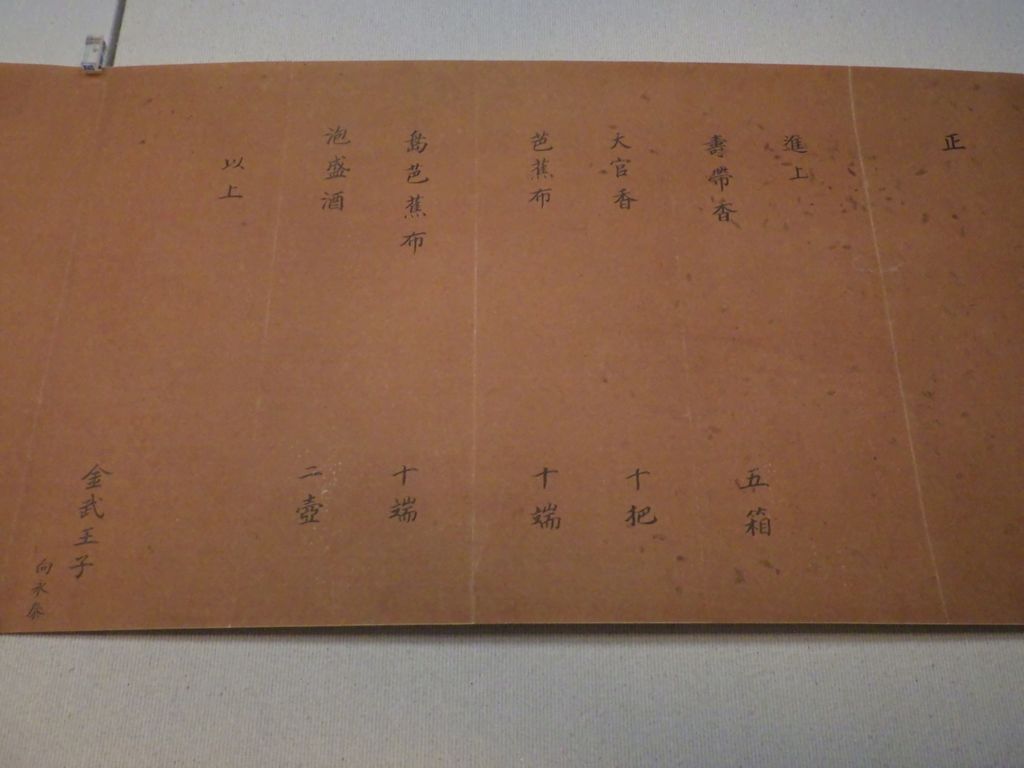 正
進上
壽帶香 五箱
大官香 十把
芭蕉布 十端
島芭蕉布 十端
泡盛酒 二壺
以上
金武王子
向永泰